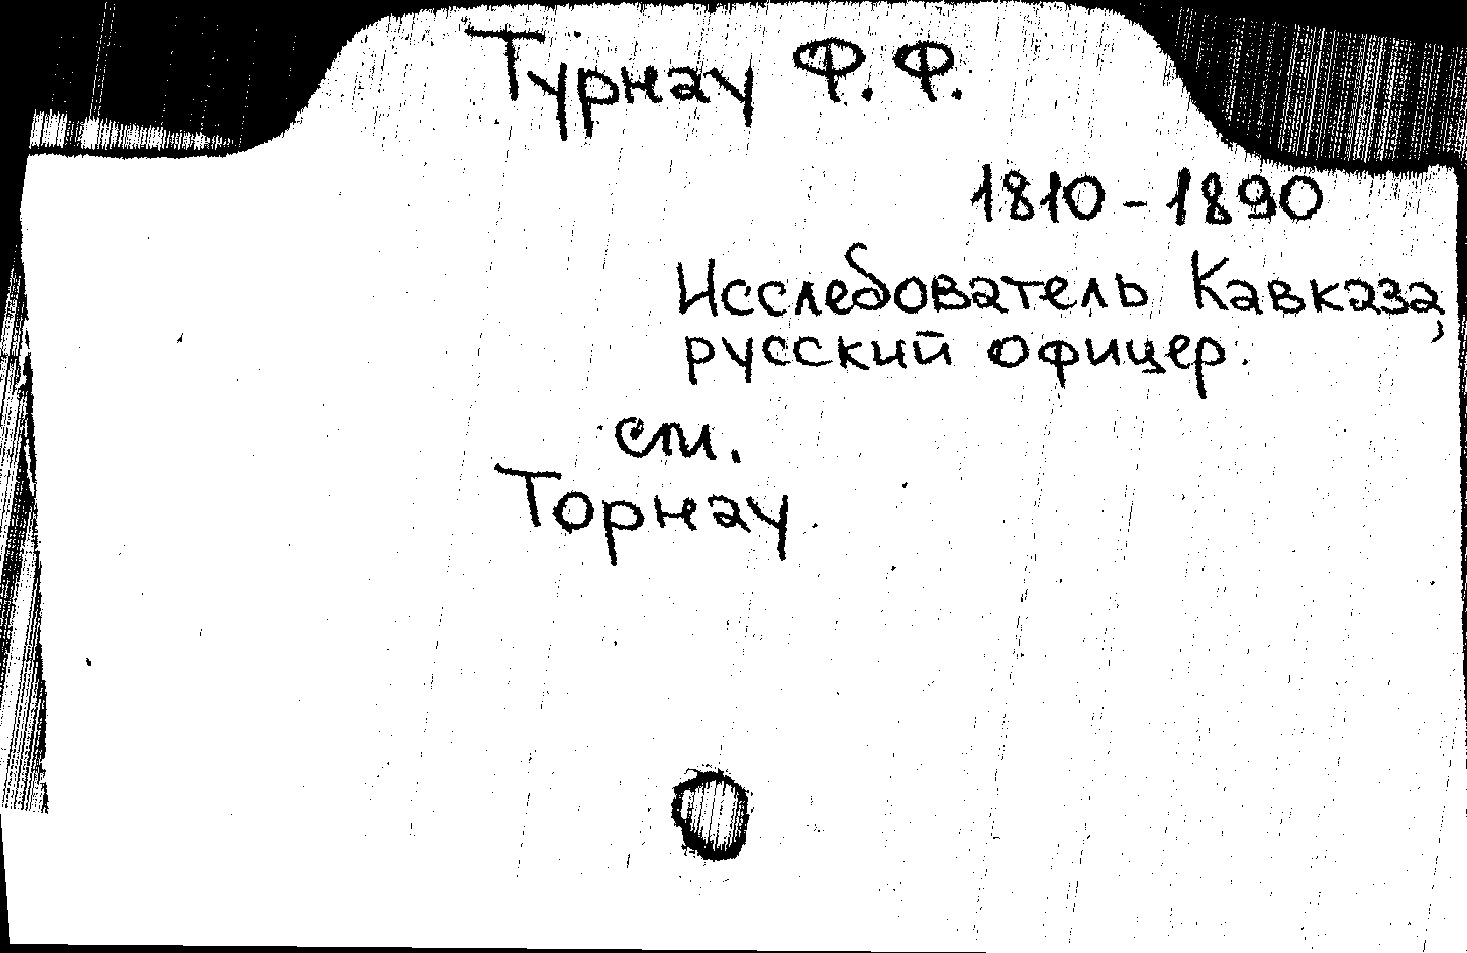 Турнау Ф. Ф.
1810-1890
Исследователь Кавказа,
русский офицер.
см.
Торнау